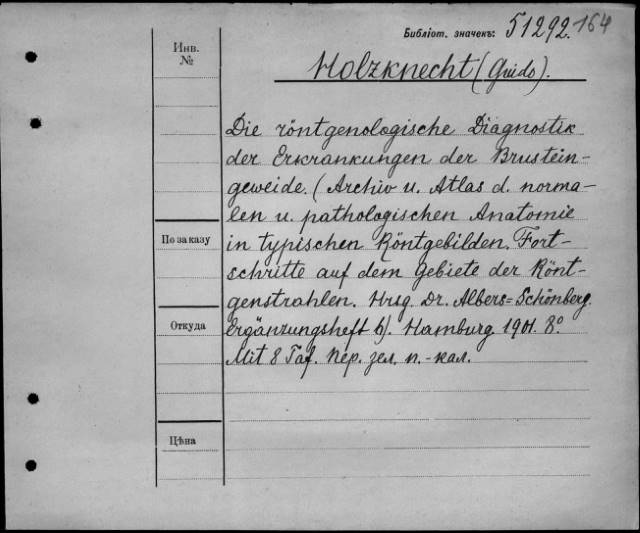 Библіот. значекъ: 51292. 164
Инв. №
Holzknecht (Guido).
Die röntgenologische Diagnostik
der Erkrankungen der Brustein-
geweide. (Archiv u. Atlas d. norma-
len u. pathologischen Anatomie
По заказу
in typischen Röntgebilden. Fort-
schritte auf dem Gebiete der Rönt-
genstrahlen. Hrsg. Dr. Albers=Schönberg.
Откуда
Ergänzungsheft 6). Hamburg. 1901. 8º.
Mit 8 Taf. Пер. зел. п.-кал.
Цѣна